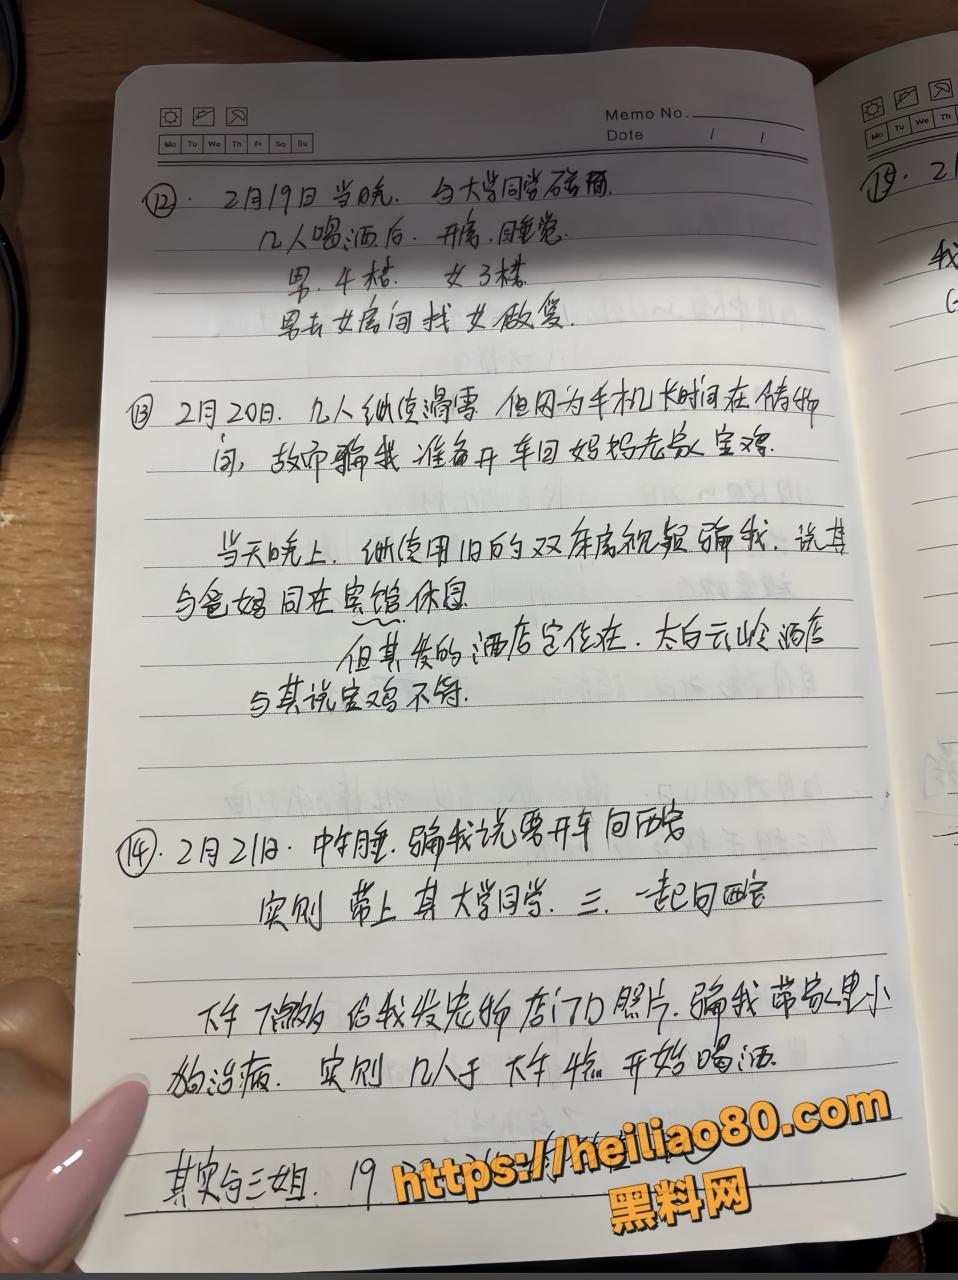 Memo No.
Date / /
Mo Tu We Th Fr Sa Su
⑫. 2月19日当晚. 与大学同学碰面.
几人喝酒后. 开房.睡觉.
男.4楼. 女3楼.
男去女房间找女做爱.
⑬ 2月20日. 几人继续滑雪 但因为手机长时间在储物
间, 故而骗我 准备开车回妈妈老家宝鸡.
当天晚上. 继续用旧的双床房视频骗我. 说其
与爸妈同在宾馆休息
但其发的酒店定位在. 太白云岭酒店
与其说宝鸡不符.
⑭. 2月21日. 中午睡. 骗我说要开车回西安
实则 带上其大学同学. 三. 一起回西安
下午7点多 给我发宠物店门口照片. 骗我带家里小
狗治病. 实则 几人于下午4点开始喝酒.
其实与三姐. 19
https://heiliao80.com
黑料网
Mo Tu We Th
⑮. 21
我